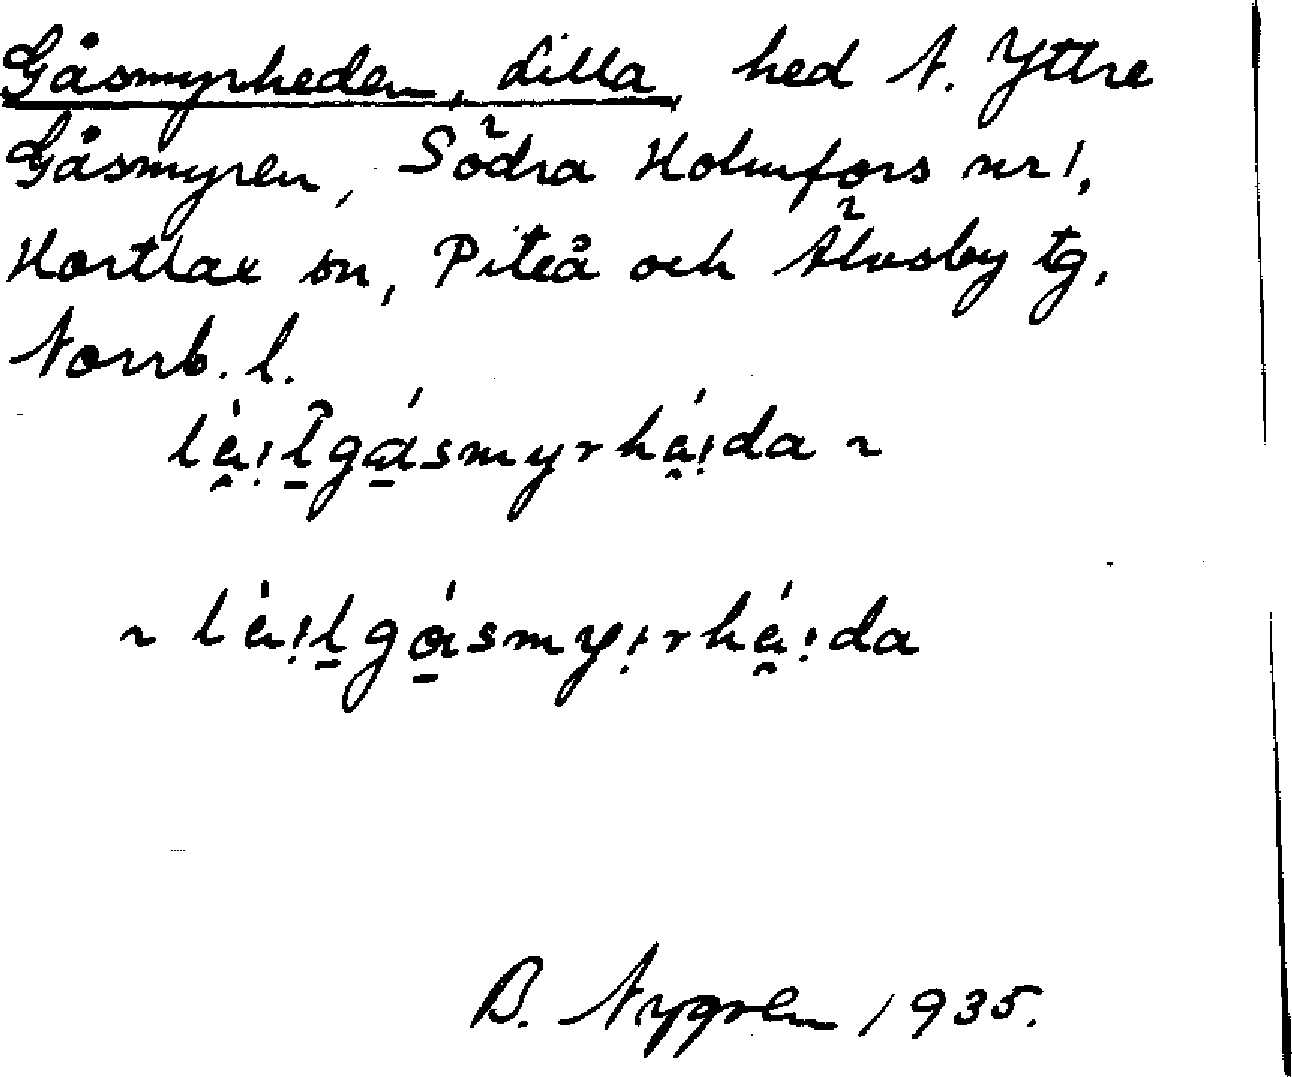 Gåsmyrheden, Lilla, hed N. Yttre
Gåsmyren, Södra Holmfors nr 1,
Hortlax sn, Piteå och Älvsby tg,
Norrb. l.
lȧ̀i̥l̲gá̲smyrhá̤i̥da ~
~ lȧ̀i̥l̲gá̲smyi̥rhá̤i̥da
B. Nygren 1935.